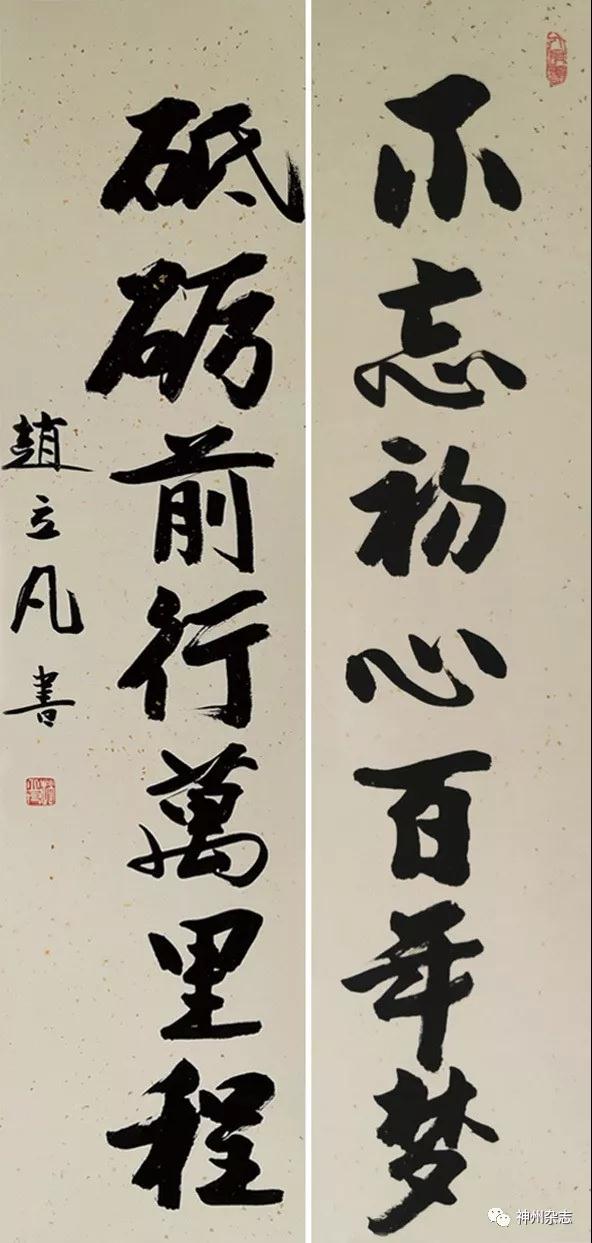 不忘初心百年梦
砥砺前行萬里程
趙立凡書
神州杂志